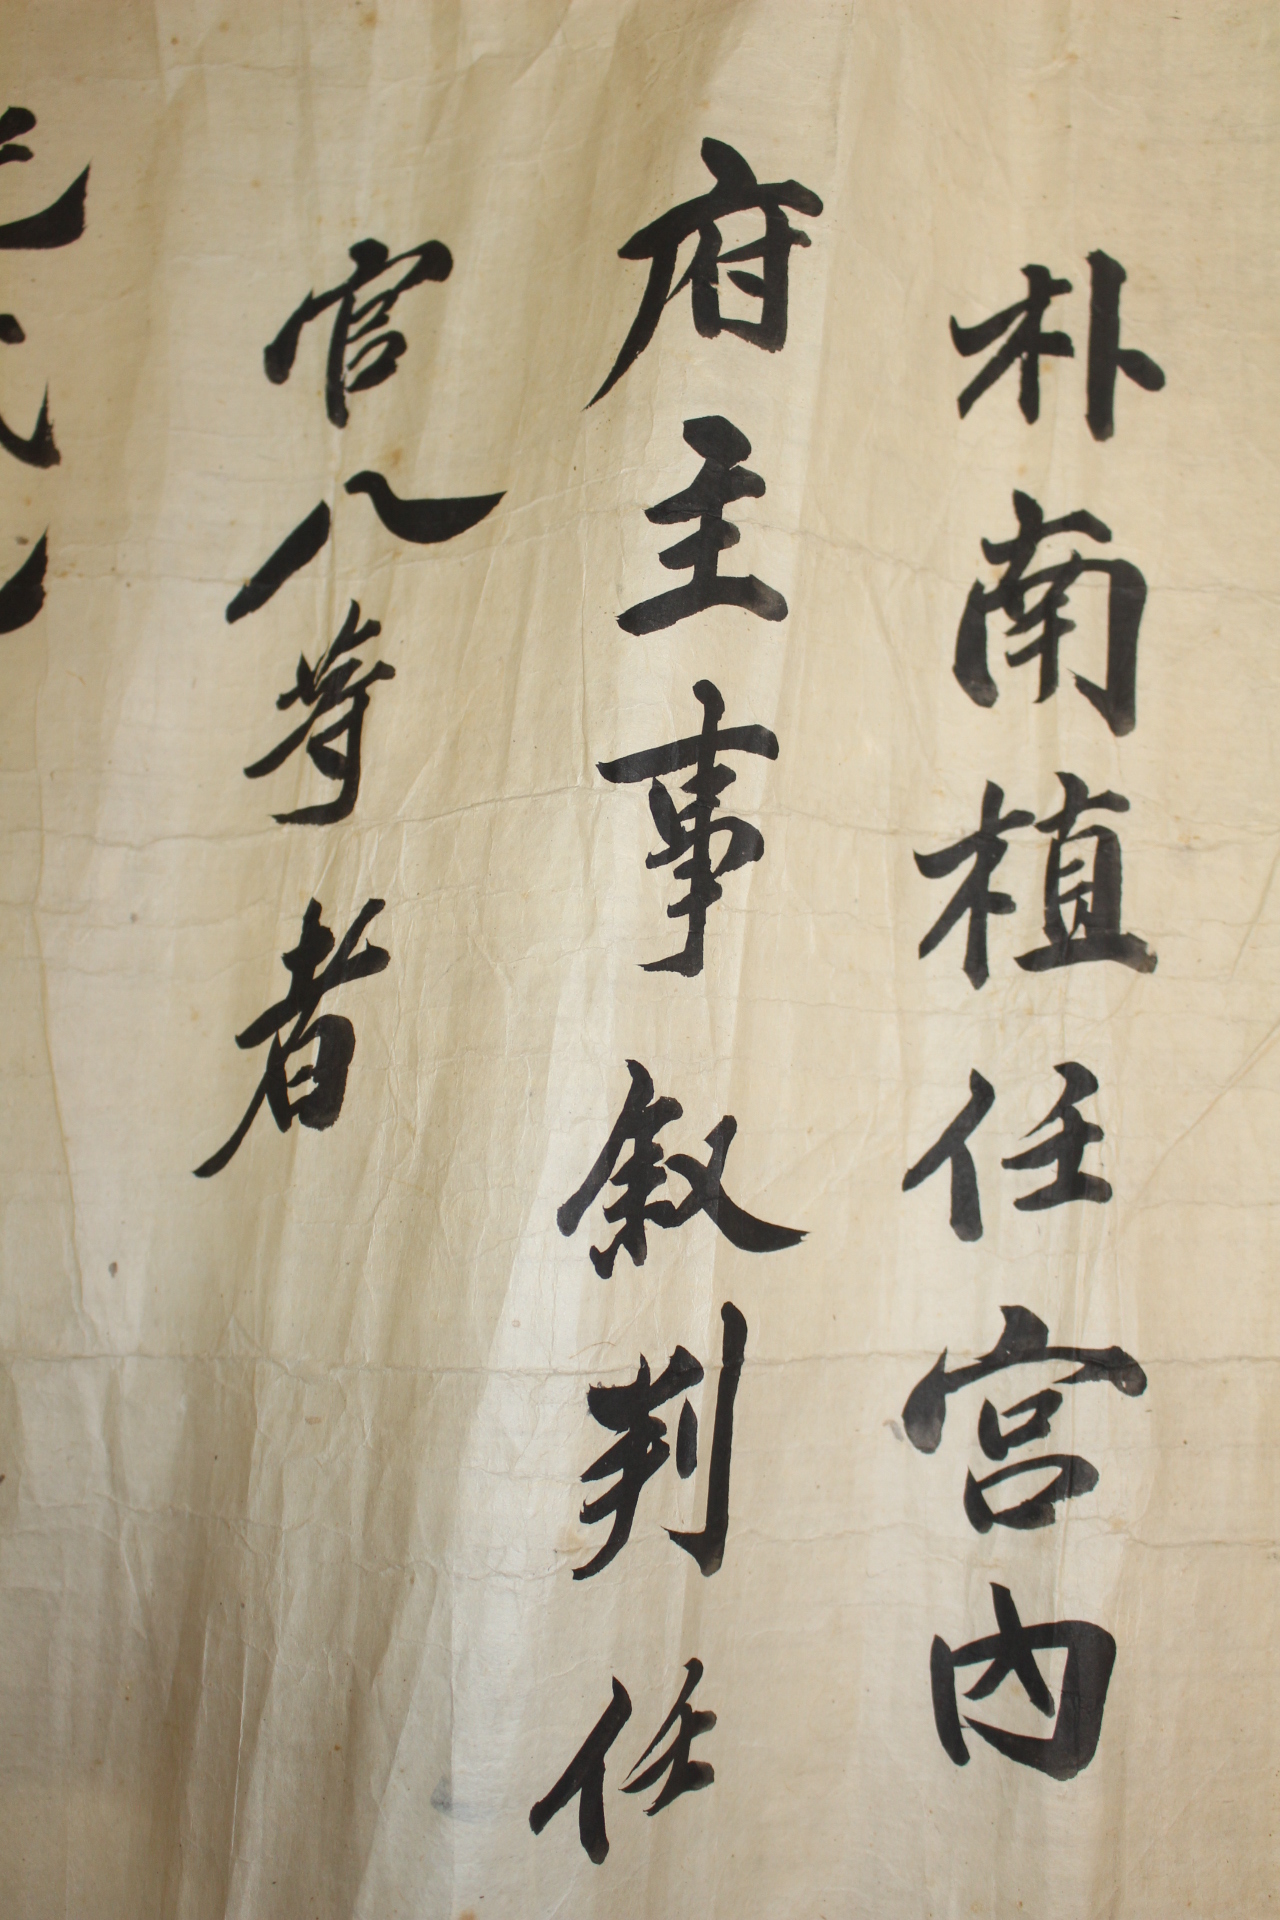 朴南植任宮內
府主事敍判任
官八等者